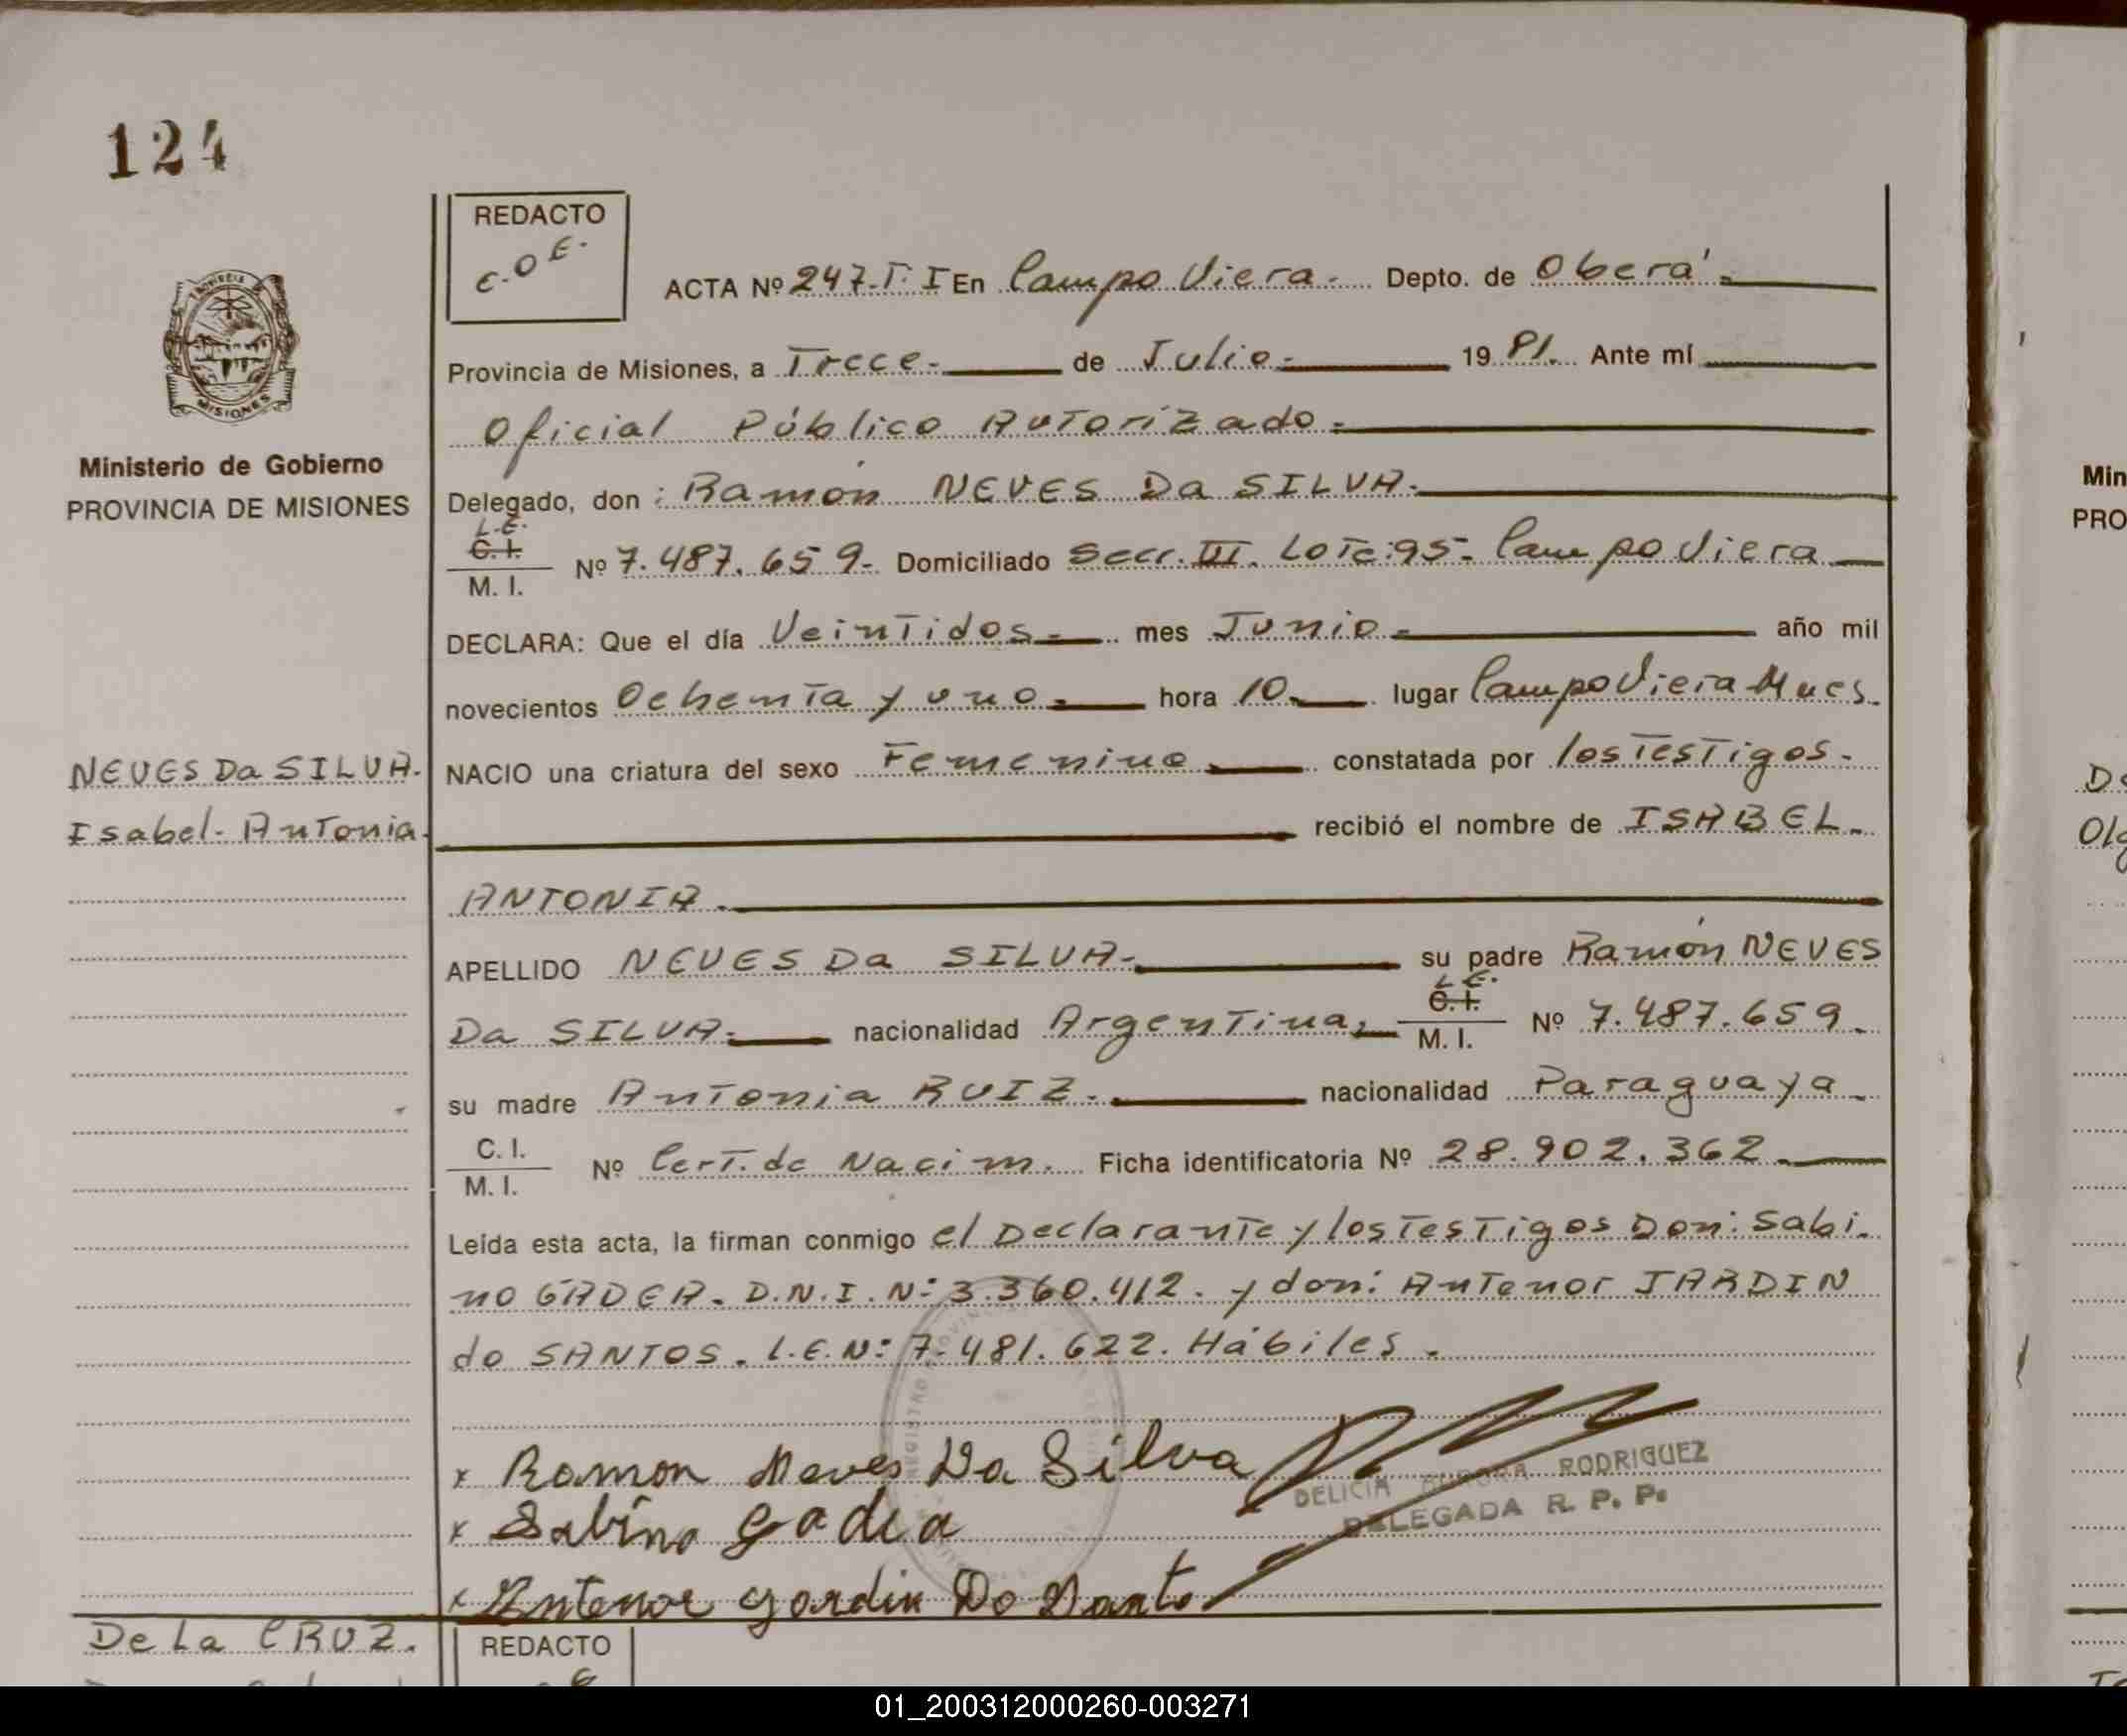 124
REDACTO
C.O.E.
ACTA Nº 247.T: I En Campo Viera. Depto. de Oberá.
Provincia de Misiones, a Trece. de Julio. 19 81. Ante mí
Oficial Público Autorizado.
Ministerio de Gobierno
PROVINCIA DE MISIONES
Delegado, don: Ramón NEVES Da SILVA.
L.E.
C.I.
M. I. Nº 7.487.659. Domiciliado Secc. III. Lote: 95. Campo Viera
DECLARA: Que el día Veintidos. mes Junio. año mil
novecientos Ochenta y uno. hora 10. lugar Campo Viera Mnes.
NEVES Da SILVA.
Isabel. Antonia.
NACIO una criatura del sexo Femenino. constatada por los Testigos.
recibió el nombre de ISABEL.
ANTONIA.
APELLIDO NEVES Da SILVA. su padre Ramón NEVES
Da SILVA. nacionalidad Argentina. L.E. C.I. M. I. Nº 7.487.659.
su madre Antonia RUIZ. nacionalidad Paraguaya.
C. I.
M. I. Nº Cert. de Nacim. Ficha identificatoria Nº 28.902.362.
Leída esta acta, la firman conmigo el Declarante y los Testigos Don: Sabi.
no GADEA. D.N.I. Nº: 3.360.412. y don: Antenor JARDIN
do SANTOS. L.E. Nº: 7.481.622. Hábiles.
x Ramon Neves Da Silva
DELICIA AURORA RODRIGUEZ
DELEGADA R. P. P.
x Sabino Gadea
x Antenor Gardin Do Santo
De La CRUZ.
REDACTO
Min
PRO
01_200312000260-003271